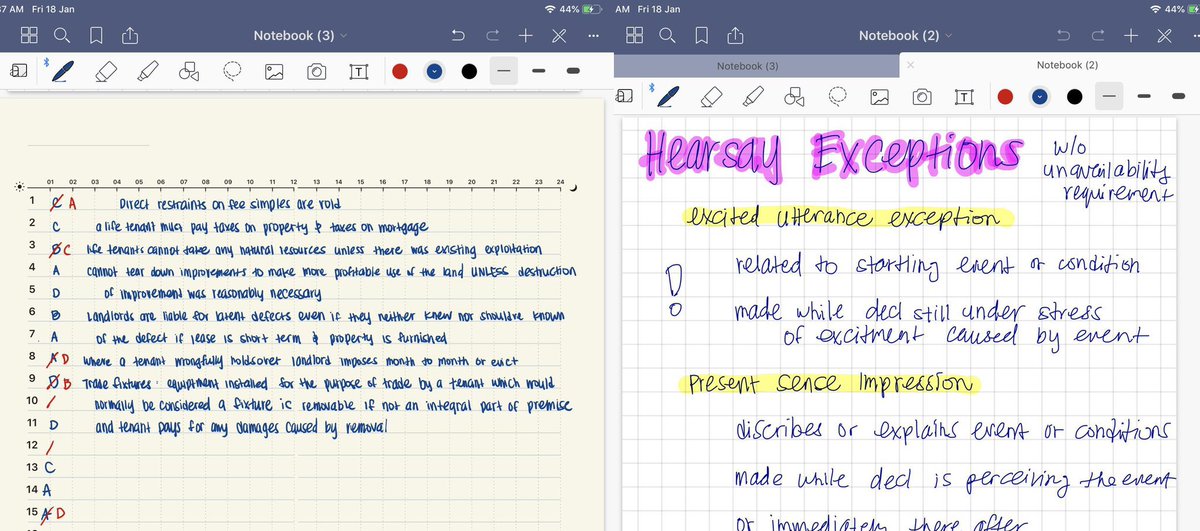 37 AM Fri 18 Jan
44%
Notebook (3)
T
01 02 03 04 05 06 07 08 09 10 11 12 13 14 15 16 17 18 19 20 21 22 23 24
1 C A Direct restraints on fee simples are void
2 C a life tenant must pay taxes on property & taxes on mortgage
3 B C life tenants cannot take any natural resources unless there was existing exploitation
4 A cannot tear down improvements to make more profitable use of the land UNLESS destruction
5 D of improvement was reasonably necessary
6 B Landlords are liable for latent defects even if they neither knew nor should've known
7 A of the defect if lease is short term & property is furnished
8 A D where a tenant wrongfully holdsover landlord imposes month to month or evict
9 D B Trade fixtures: equiptment installed for the purpose of trade by a tenant which would
10 / normally be considered a fixture is removable if not an integral part of premise
11 D and tenant pays for any damages caused by removal
12 /
13 C
14 A
15 A D
AM Fri 18 Jan
44%
Notebook (2)
Notebook (3)
Notebook (2)
T
Hearsay Exceptions w/o
unavailability
requirement
excited utterance exception
! related to startling event or condition
made while decl still under stress
of excitment caused by event
Present sence Impression
discribes or explains event or conditions
made while decl is perceiving the event
or immediately there after